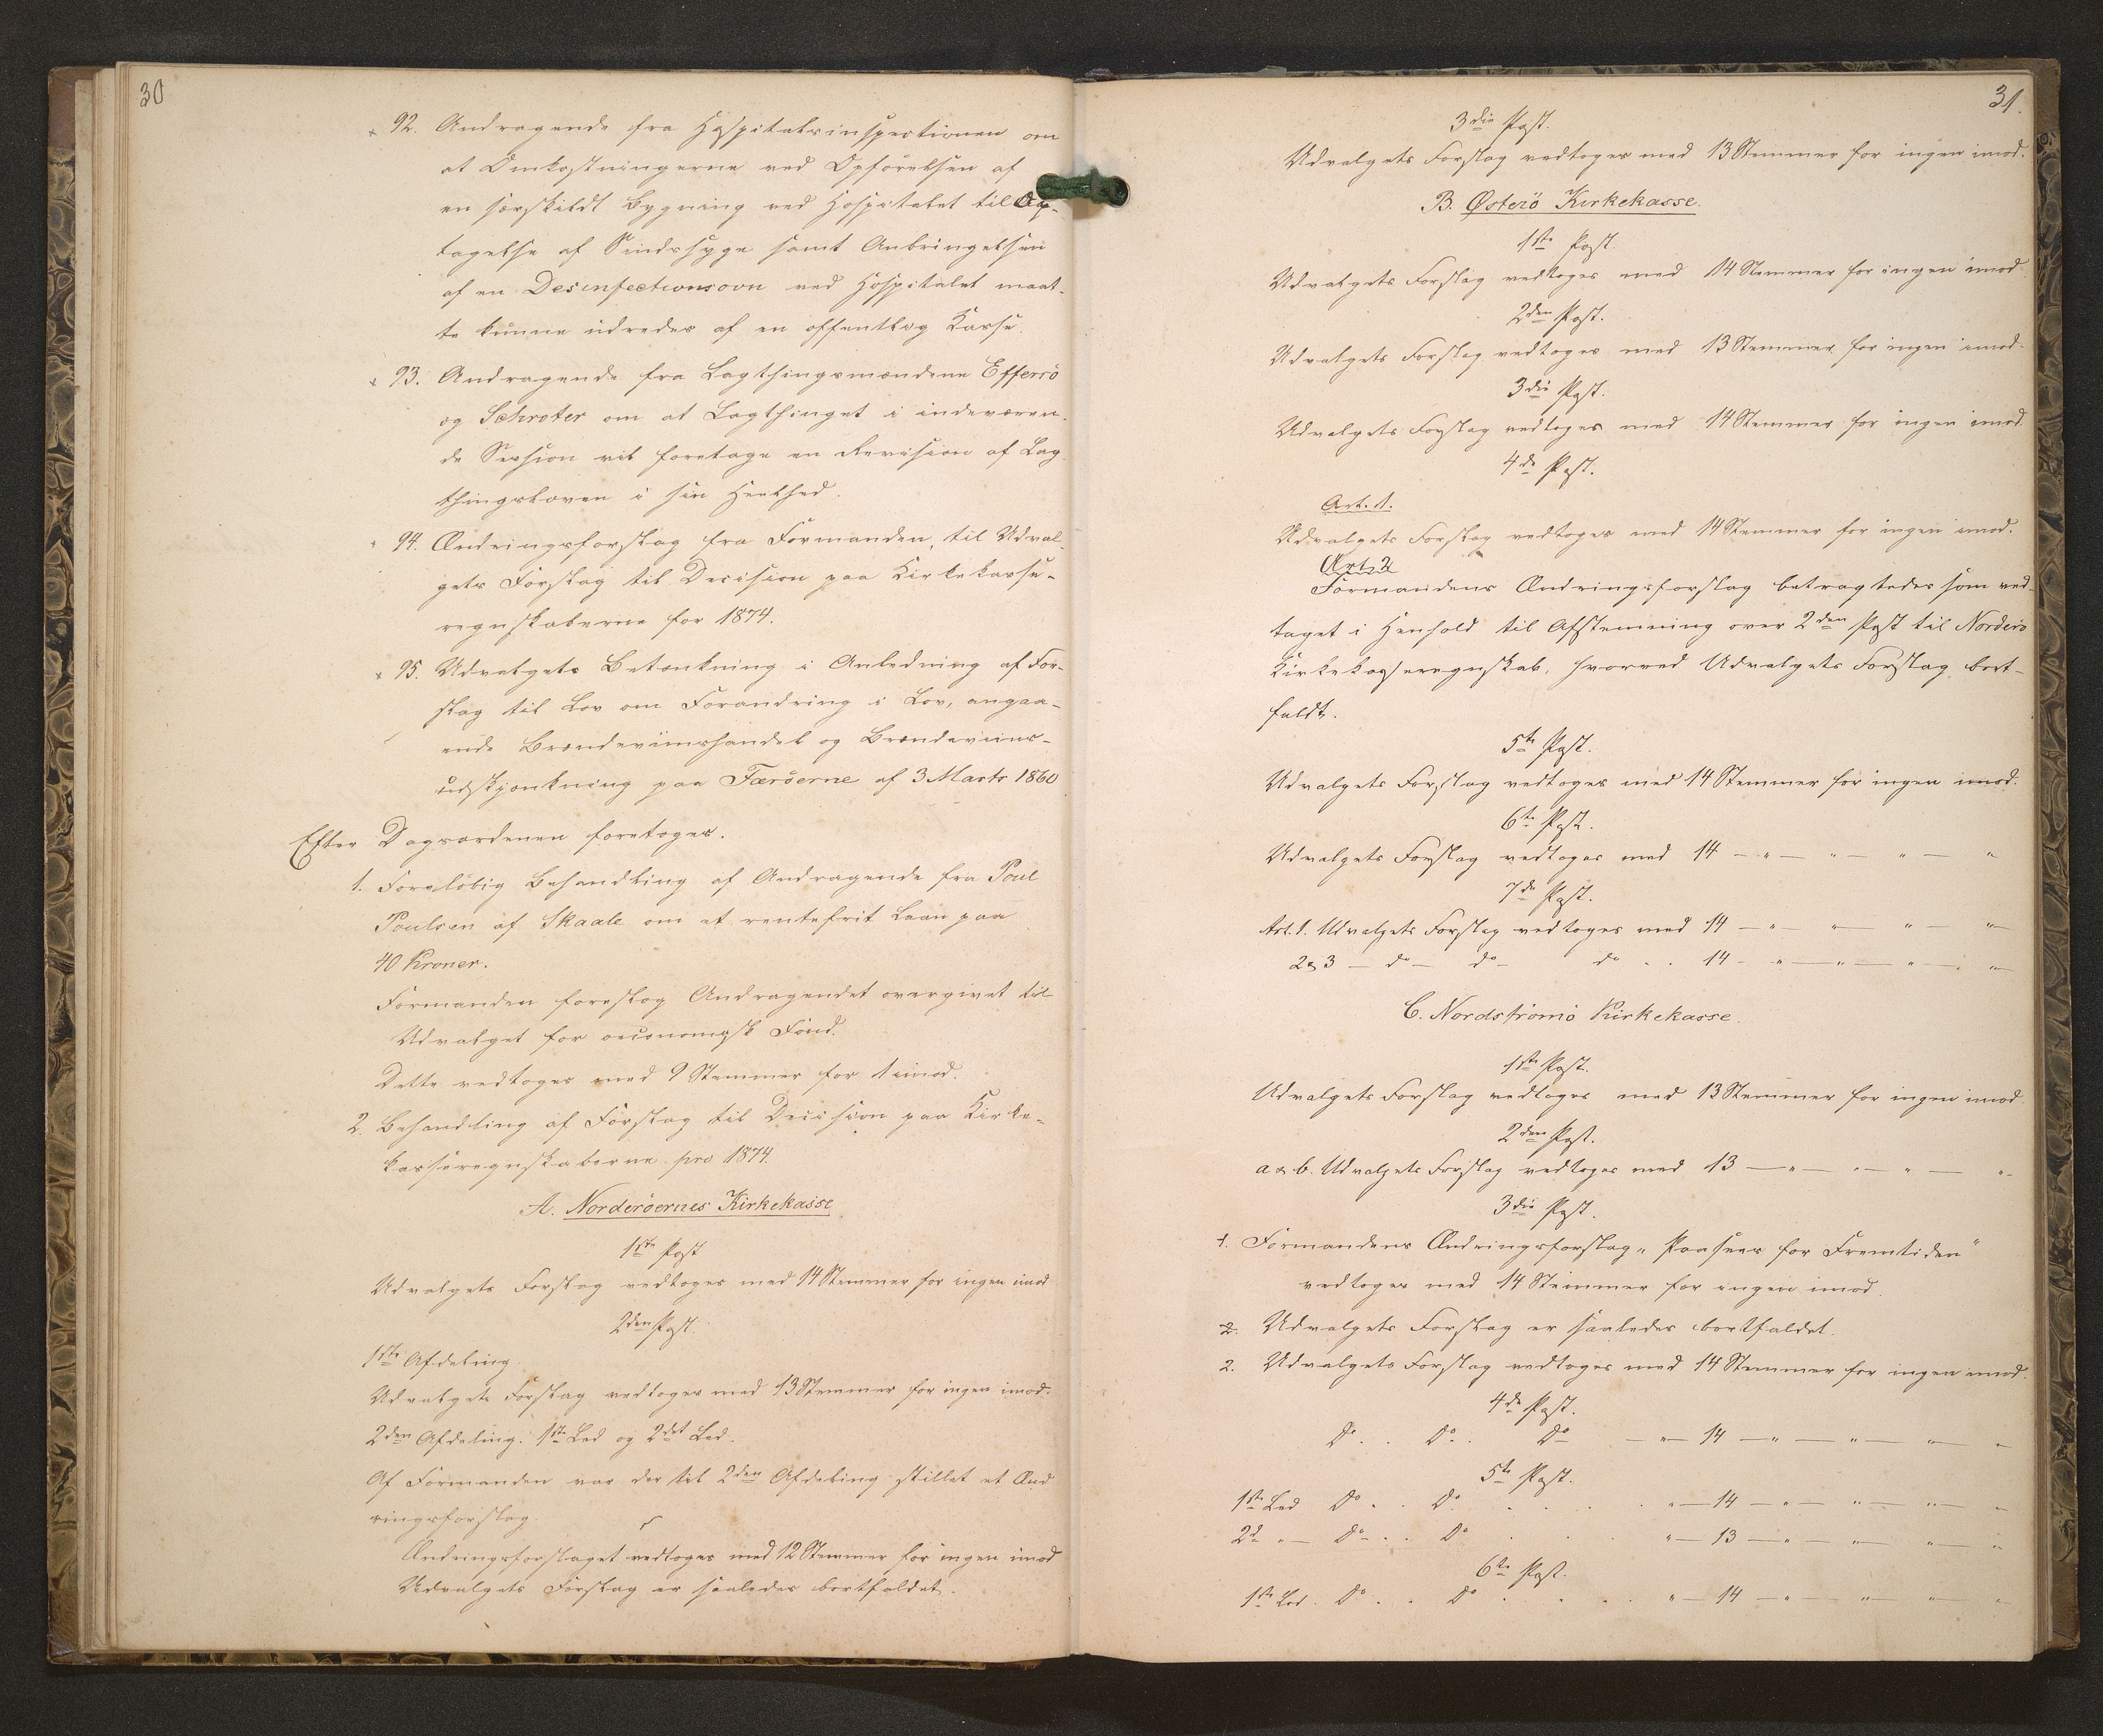 30
× 92. Andragende fra Hospitalsinspectionen om
at Omkostningerne ved Opførelsen af
en særskildt Bygning ved Hospitalet til Op-
tagelse af Sindssyge samt Anbringelsen
af en Desinfectionsovn ved Hospitalet maat-
te kunne udredes af en offentlig Kasse
× 93. Andragende fra Lagthingsmændene Effersö
og Schroter om at Lagthinget i indeværen-
de Session vil foretage en Revision af Lag-
thingsloven i sin Heelhed.
× 94. Ændringsforslag fra Formanden, til Udval-
gets Forslag til Decision paa Kirkekasse-
regnskaberne for 1874.
× 95. Udvalgets Betænkning i Anledning af For-
slag til Lov om Forandring i Lov, angaa-
ende Brændeviinshandel og Brændeviins-
udskjænkning paa Færöerne af 3 Marts 1860
Efter Dagsordenen foretoges.
1. Foreløbig Behandling af Andragende fra Poul
Poulsen af Skaale om et rentefrit Laan paa
40 Kroner.
Formanden foreslog Andragendet overgivet til
Udvalget for oeconomisk Fond.
Dette vedtoges med 9 Stemmer for 1 imod.
2. Behandling af Forslag til Decision paa Kirke-
kasseregnskaberne pro 1874.
A. Norderöernes Kirkekasse
1ste Post
Udvalgets Forslag vedtoges med 14 Stemmer for ingen imod
2den Post.
1ste Afdeling.
Udvalgets Forslag vedtoges med 13 Stemmer for ingen imod.
2den Afdeling. 1ste Led og 2det Led.
Af Formanden var der til 2den Afdeling stillet et Ænd
ringsforslag.
Ændringsforslaget vedtoges med 12 Stemmer for ingen imod
Udvalgets Forslag er saaledes bortfaldet.
31.
3die Post.
Udvalgets Forslag vedtoges med 13 Stemmer for ingen imod.
B. Österö Kirkekasse.
1ste Post.
Udvalgets Forslag vedtoges med 14 Stemmer for ingen imod
2den Post.
Udvalgets Forslag vedtoges med 13 Stemmer for ingen imod.
3die Post.
Udvalgets Forslag vedtoges med 14 Stemmer for ingen imod.
4de Post.
Art. 1.
Udvalgets Forslag vedtoges med 14 Stemmer for ingen imod.
Art. 2
Formandens Ændringsforslag betragtedes som ved-
taget i Henhold til Afstemning over 2den Post til Norderö
Kirkekasseregnskab, hvorved Udvalgets Forslag bort-
faldt.
5te Post.
Udvalgets Forslag vedtoges med 14 Stemmer for ingen imod.
6te Post.
Udvalgets Forslag vedtoges med 14 — " — " — " — "
7de Post.
Art. 1. Udvalgets Forslag vedtoges med 14 — " — " — " — "
2 & 3 — do — do — do . . 14 — " — " — " — "
C. Nordströmö Kirkekasse.
1ste Post.
Udvalgets Forslag vedtoges med 13 Stemmer for ingen imod.
2den Post.
a & b. Udvalgets Forslag vedtoges med 13 — " — " — " — "
3die Post.
1. Formandens Ændringsforslag "Paasees for Fremtiden"
vedtoges med 14 Stemmer for ingen imod.
2. Udvalgets Forslag er saaledes bortfaldet.
2. Udvalgets Forslag vedtoges med 14 Stemmer for ingen imod.
4de Post.
Do . . Do . Do — " — 14 — " — " — " — "
5te Post.
1ste Led Do . . Do . . . . " — 14 — " — " — " — "
2d " — Do . . Do . . " — 13 — " — " — " — "
6te Post.
1ste Led. Do . . Do . . . . " — 14 — " — " — " — "